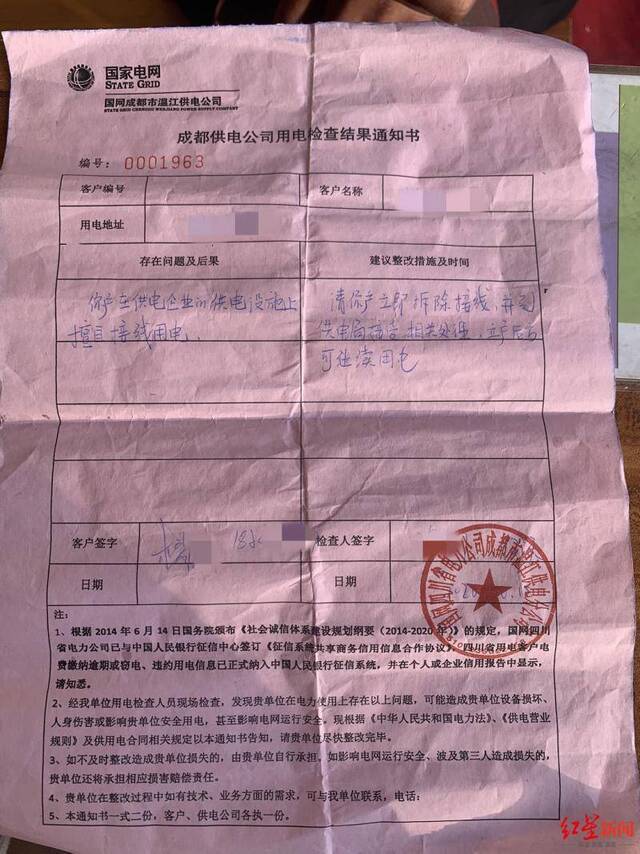 国家电网
STATE GRID
国网成都市温江供电公司
STATE GRID CHENGDU WENJIANG POWER SUPPLY COMPANY
成都供电公司用电检查结果通知书
编号：0001963
客户编号 客户名称
用电地址
存在问题及后果 建议整改措施及时间
你户在供电企业的供电设施上 请你户立即拆除接线，并到
擅自接线用电． 供电局接告 相关处理，立户后方
可继续用电
客户签字 检查人签字
日期 日期
国网四川省电力公司成都市温江供电分公司
注：
1、根据 2014 年 6 月 14 日国务院颁布《社会诚信体系建设规划纲要（2014-2020 年）》的规定，国网四川
省电力公司已与中国人民银行征信中心签订《征信系统共享商务信用信息合作协议》，四川省用电客户电
费缴纳逾期或窃电、违约用电信息已正式纳入中国人民银行征信系统，并在个人或企业信用报告中显示，
请知悉。
2、经我单位用电检查人员现场检查，发现贵单位在电力使用上存在以上问题，可能造成贵单位设备损坏、
人身伤害或影响贵单位安全用电，甚至影响电网运行安全。现根据《中华人民共和国电力法》、《供电营业
规则》及供用电合同相关规定以本通知书告知，请贵单位尽快整改完毕。
3、如不及时整改造成贵单位损失的，由贵单位自行承担。如影响电网运行安全、波及第三人造成损失的，
贵单位还将承担相应损害赔偿责任。
4、贵单位在整改过程中如有技术、业务方面的需求，可与我单位联系，电话：
5、本通知书一式二份，客户、供电公司各执一份。
红星新闻